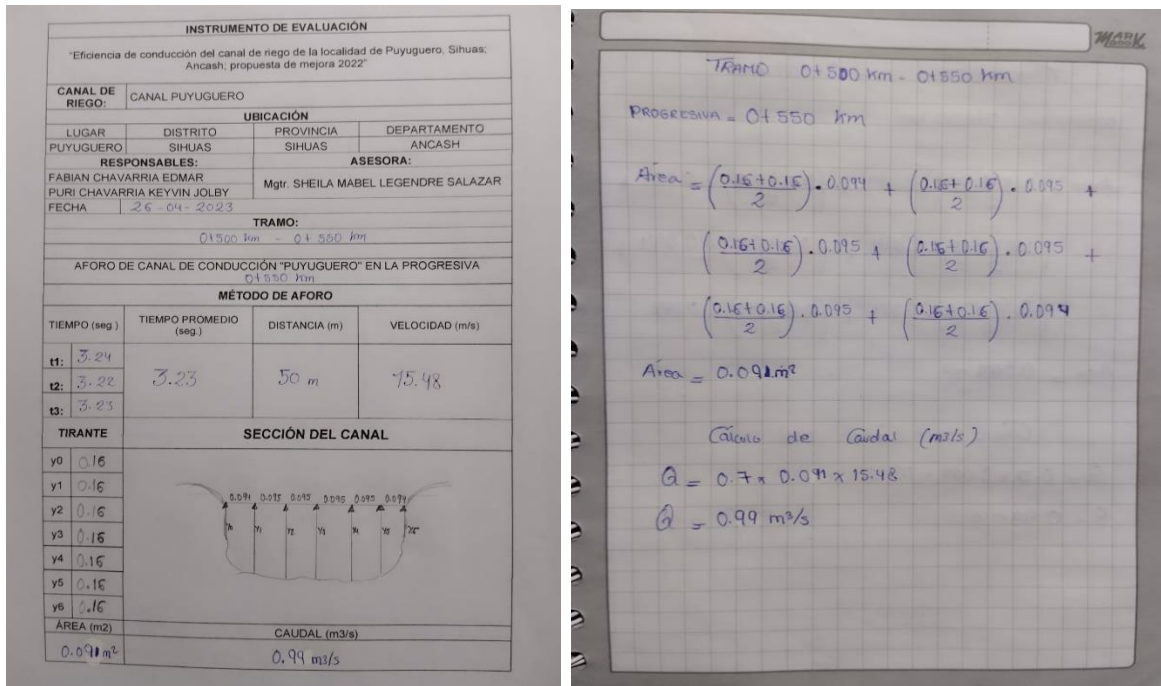 INSTRUMENTO DE EVALUACIÓN
"Eficiencia de conducción del canal de riego de la localidad de Puyuguero, Sihuas;
Ancash; propuesta de mejora 2022"
CANAL DE RIEGO: CANAL PUYUGUERO
UBICACIÓN
LUGAR DISTRITO PROVINCIA DEPARTAMENTO
PUYUGUERO SIHUAS SIHUAS ANCASH
RESPONSABLES: ASESORA:
FABIAN CHAVARRIA EDMAR
PURI CHAVARRIA KEYVIN JOLBY
Mgtr. SHEILA MABEL LEGENDRE SALAZAR
FECHA 26-04-2023
TRAMO:
0+500 km - 0+550 km
AFORO DE CANAL DE CONDUCCIÓN "PUYUGUERO" EN LA PROGRESIVA
0+550 km
MÉTODO DE AFORO
TIEMPO (seg.) TIEMPO PROMEDIO (seg.) DISTANCIA (m) VELOCIDAD (m/s)
t1: 3.24
t2: 3.22 3.23 50 m 15.48
t3: 3.23
TIRANTE SECCIÓN DEL CANAL
y0 0.16
y1 0.16
y2 0.16
y3 0.16
y4 0.16
y5 0.16
y6 0.16
0.094 0.095 0.095 0.095 0.095 0.094
Y0 Y1 Y2 Y3 Y4 Y5 Y6
ÁREA (m2) CAUDAL (m3/s)
0.091 m² 0.99 m3/s
TRAMO 0+500 km - 0+550 km
PROGRESIVA = 0+550 km
Área = (0.16+0.16 / 2) . 0.094 + (0.16+0.16 / 2) . 0.095 +
(0.16+0.16 / 2) . 0.095 + (0.16+0.16 / 2) . 0.095 +
(0.16+0.16 / 2) . 0.095 + (0.16+0.16 / 2) . 0.094
Área = 0.091 m²
Cálculo de Caudal (m3/s)
Q = 0.7 x 0.091 x 15.48
Q = 0.99 m³/s